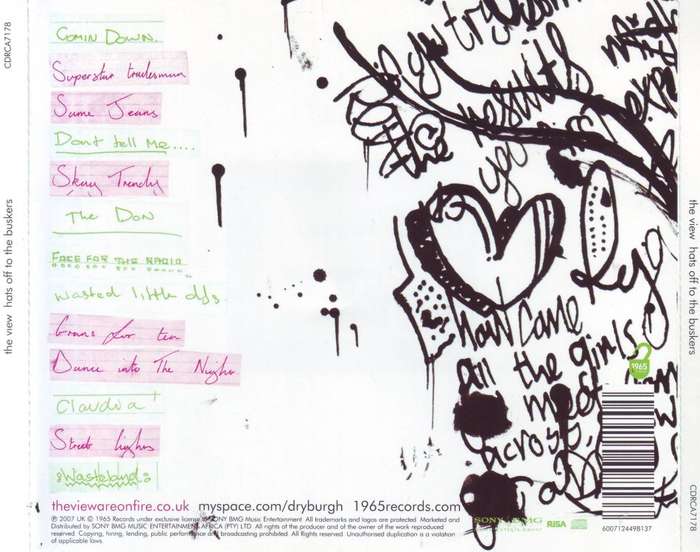 CDRCA7178
the view hats off to the buskers
Comin Down..
Superstar tradesman
Same Jeans
Dont tell Me....
Skag Trendy
The Don
FACE FOR THE RADIO
wasted little djs
Grans for tea
Dance into The Night
Claudia
Street lights
Wasteland
if you try
results
you
Rott
the
how come
all the girls
meet
across
theviewareonfire.co.uk myspace.com/dryburgh 1965records.com
℗ 2007 UK © 1965 Records under exclusive license SONY BMG Music Entertainment. All trademarks and logos are protected. Marketed and
Distributed by SONY BMG MUSIC ENTERTAINMENT AFRICA (PTY) LTD. All rights of the producer and of the owner of the work reproduced
reserved. Copying, hiring, lending, public performance and broadcasting prohibited. All Rights reserved. Unauthorised duplication is a violation
of applicable laws.
SONY BMG
MUSIC ENTERTAINMENT
RiSA
1965
6007124498137
the view hats off to the buskers
CDRCA7178